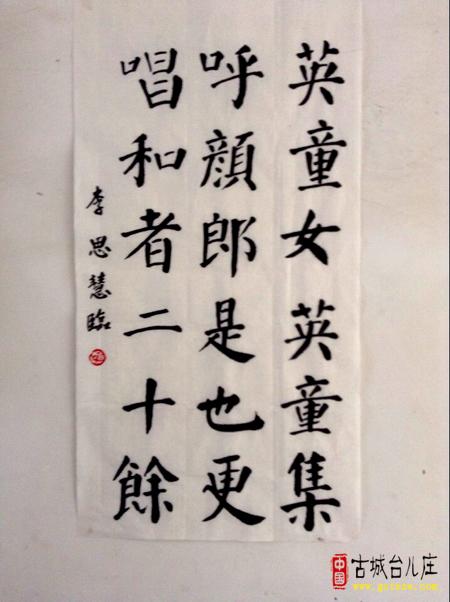 英童女英童集
呼顔郎是也更
唱和者二十餘
李思慧臨
中国
古城台儿庄